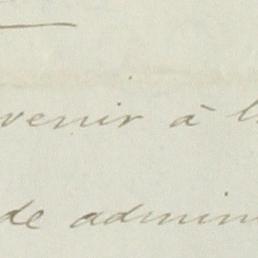 venir à l
de admin